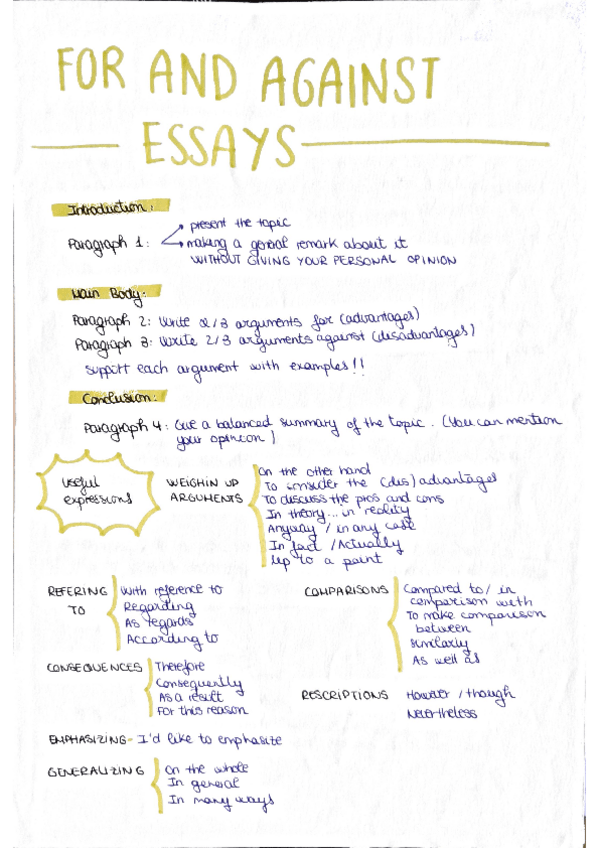 FOR AND AGAINST
ESSAYS
Introduction:
Paragraph 1:
present the topic
making a general remark about it
WITHOUT GIVING YOUR PERSONAL OPINION
Main Body:
Paragraph 2: Write 2/3 arguments for (advantages)
Paragraph 3: Write 2/3 arguments against (disadvantages)
support each argument with examples!!
Conclusion:
Paragraph 4: Give a balanced summary of the topic. (You can mention
your opinion)
Useful
expressions
WEIGHIN UP
ARGUMENTS
On the other hand
To consider the (dis)advantages
To discuss the pros and cons
In theory... in reality
Anyway / in any case
In fact / Actually
Up to a point
REFERING
TO
With reference to
Regarding
As regards
According to
COMPARISONS
Compared to / in
comparison with
To make comparison
between
Similarly
As well as
CONSEQUENCES
Therefore
Consequently
As a result
For this reason
RESCRIPTIONS
However / though
Nevertheless
EMPHASIZING - I'd like to emphasize
GENERALIZING
On the whole
In general
In many ways